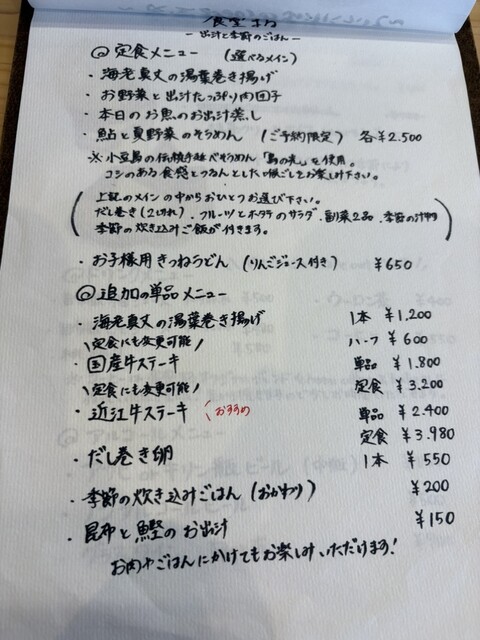 食堂
- 出汁と季節のごはん -
◎ 定食メニュー (選べるメイン)
・海老真丈の湯葉巻き揚げ
・お野菜と出汁たっぷり肉団子
・本日のお魚のお出汁蒸し
・鮎と夏野菜のそうめん (ご予約限定) 各¥2.500
※小豆島の伝統手延べそうめん「島の光」を使用。
コシのある食感とつるんとした喉ごしをお楽しみ下さい。
上記のメインの中からおひとつお選び下さい。
だし巻き(2切れ)・フルーツとホタテのサラダ・副菜2品・季節の汁物
季節の炊き込みご飯が付きます。
・お子様用きつねうどん (りんごジュース付き) ¥650
◎追加の単品メニュー
・海老真丈の湯葉巻き揚げ 1本 ¥1,200
\定食にも変更可能/ ハーフ ¥600
・国産牛ステーキ 単品 ¥1.800
\定食にも変更可能/ 定食 ¥3.200
・近江牛ステーキ おすすめ 単品 ¥2.400
定食 ¥3.980
・だし巻き卵 1本 ¥550
・季節の炊き込みごはん (おかわり) ¥200
・昆布と鰹のお出汁 ¥150
お肉やごはんにかけてもお楽しみいただけます!